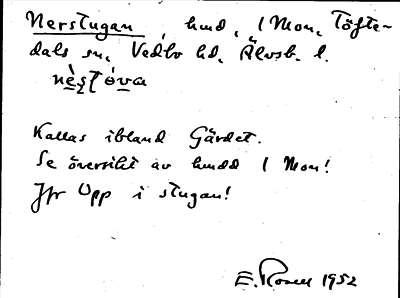 Nerstugan, hmd, 1 Mon, Töfte-
dals sn, Vedbo hd, Älvsb. l.
nèstóva
Kallas ibland Gärdet.
Se översikt av hmdd 1 Mon!
Jfr Opp i stugan!
E. Rosell 1952